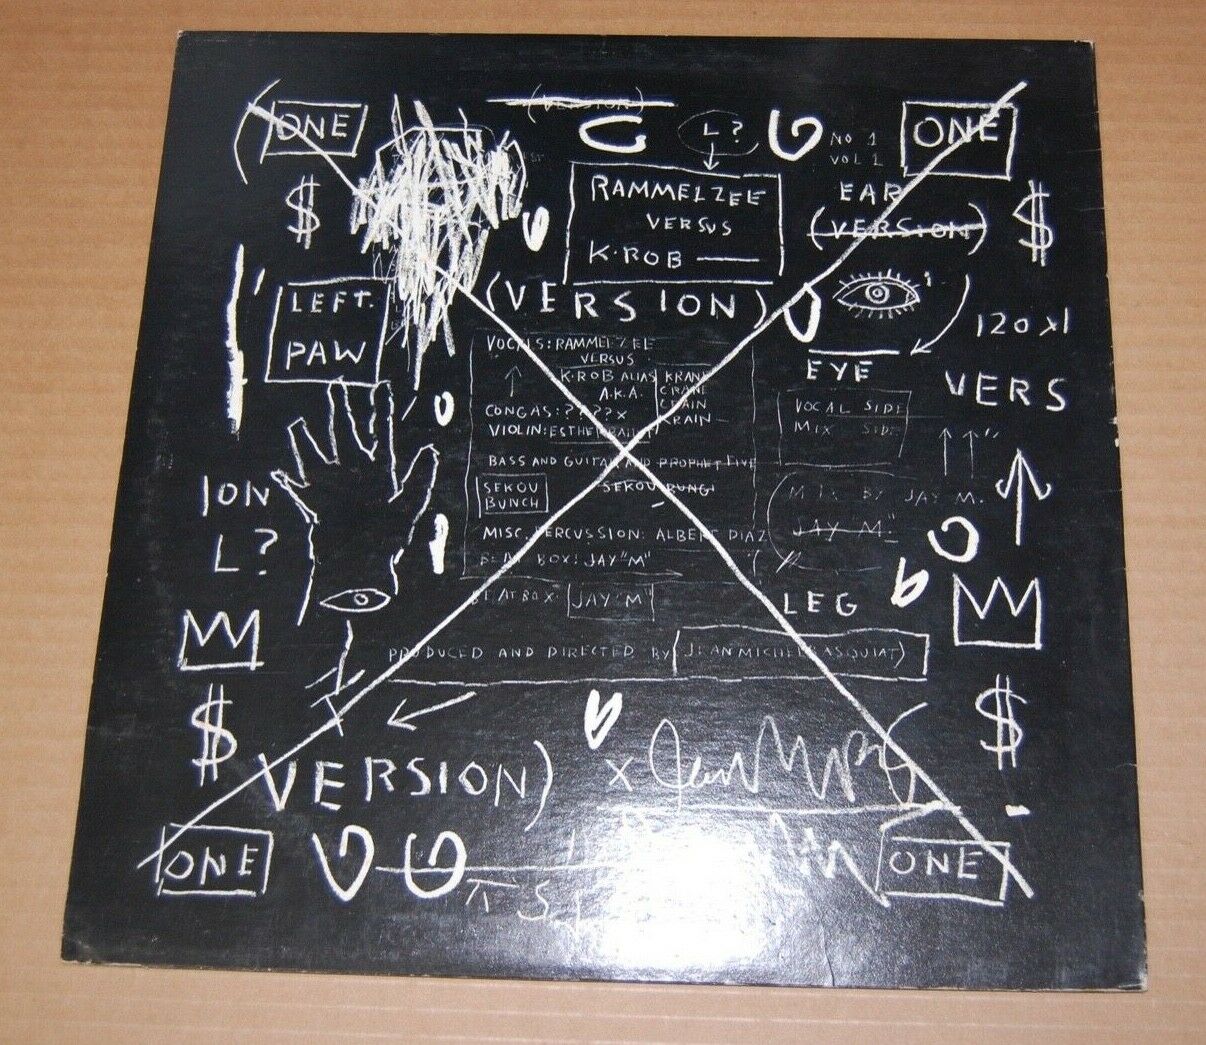 ONE
(VERSION)
L?
NO 1
VOL 1
ONE
$
RAMMELZEE
VERSUS
K·ROB
EAR
(VERSION)
$
LEFT.
PAW
(VERSION)
120 X1
EYE
VERS
VOCALS: RAMMELZEE
VERSUS
K·ROB ALIAS
A.K.A.
KRANK
CRANE
CRAIN
KRAIN
CONGAS: ????X
VIOLIN: ESTHE
BASS AND GUITAR AND PROPHET FIVE
SEKOU
BUNCH
SEKOU BUNGI
MISC. PERCUSSION: ALBERT DIAZ
BEAT BOX: JAY "M"
BEAT BOX: JAY "M"
VOCAL SIDE
MIX SIDE
MIX BY JAY M.
JAY M."
ION
L?
LEG
PRODUCED AND DIRECTED BY JEAN MICHEL BASQUIAT)
$
$
VERSION)
X
ONE
ONE